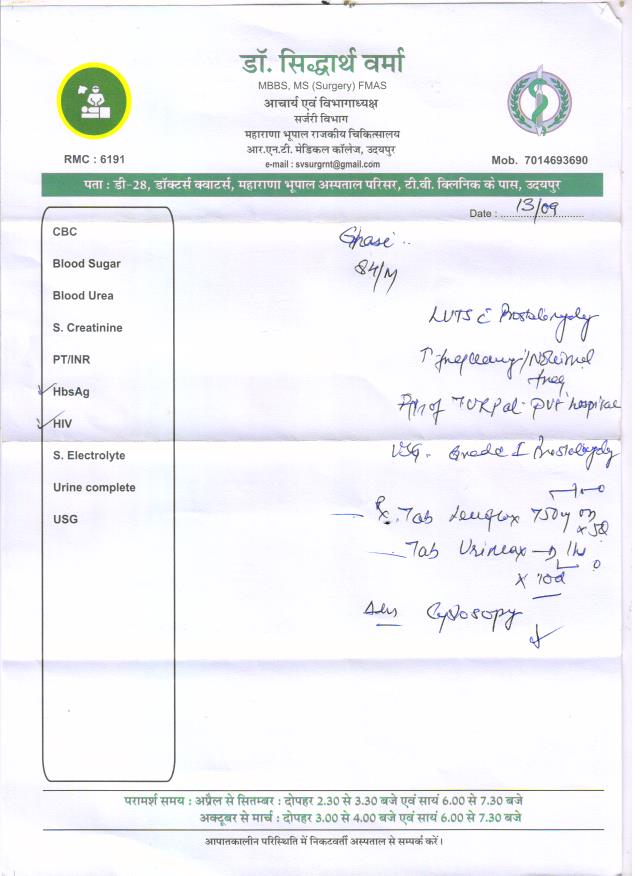 डॉ. सिद्धार्थ वर्मा
MBBS, MS (Surgery) FMAS
आचार्य एवं विभागाध्यक्ष
सर्जरी विभाग
महाराणा भूपाल राजकीय चिकित्सालय
आर.एन.टी. मेडिकल कॉलेज, उदयपुर
e-mail : svsurgrnt@gmail.com
RMC : 6191
Mob. 7014693690
पता : डी-28, डॉक्टर्स क्वाटर्स, महाराणा भूपाल अस्पताल परिसर, टी.वी. क्लिनिक के पास, उदयपुर
Date : 13/09
CBC
Blood Sugar
Blood Urea
S. Creatinine
PT/INR
HbsAg
HIV
S. Electrolyte
Urine complete
USG
84/M
LUTS c̄
↑ frequency /
freq
of TURP at - pvt hospital
USG - Grade I
Rx. Tab 750
x 5d
Tab
x 10d
Adv
परामर्श समय : अप्रैल से सितम्बर : दोपहर 2.30 से 3.30 बजे एवं सायं 6.00 से 7.30 बजे
अक्टूबर से मार्च : दोपहर 3.00 से 4.00 बजे एवं सायं 6.00 से 7.30 बजे
आपातकालीन परिस्थिति में निकटवर्ती अस्पताल से सम्पर्क करें।